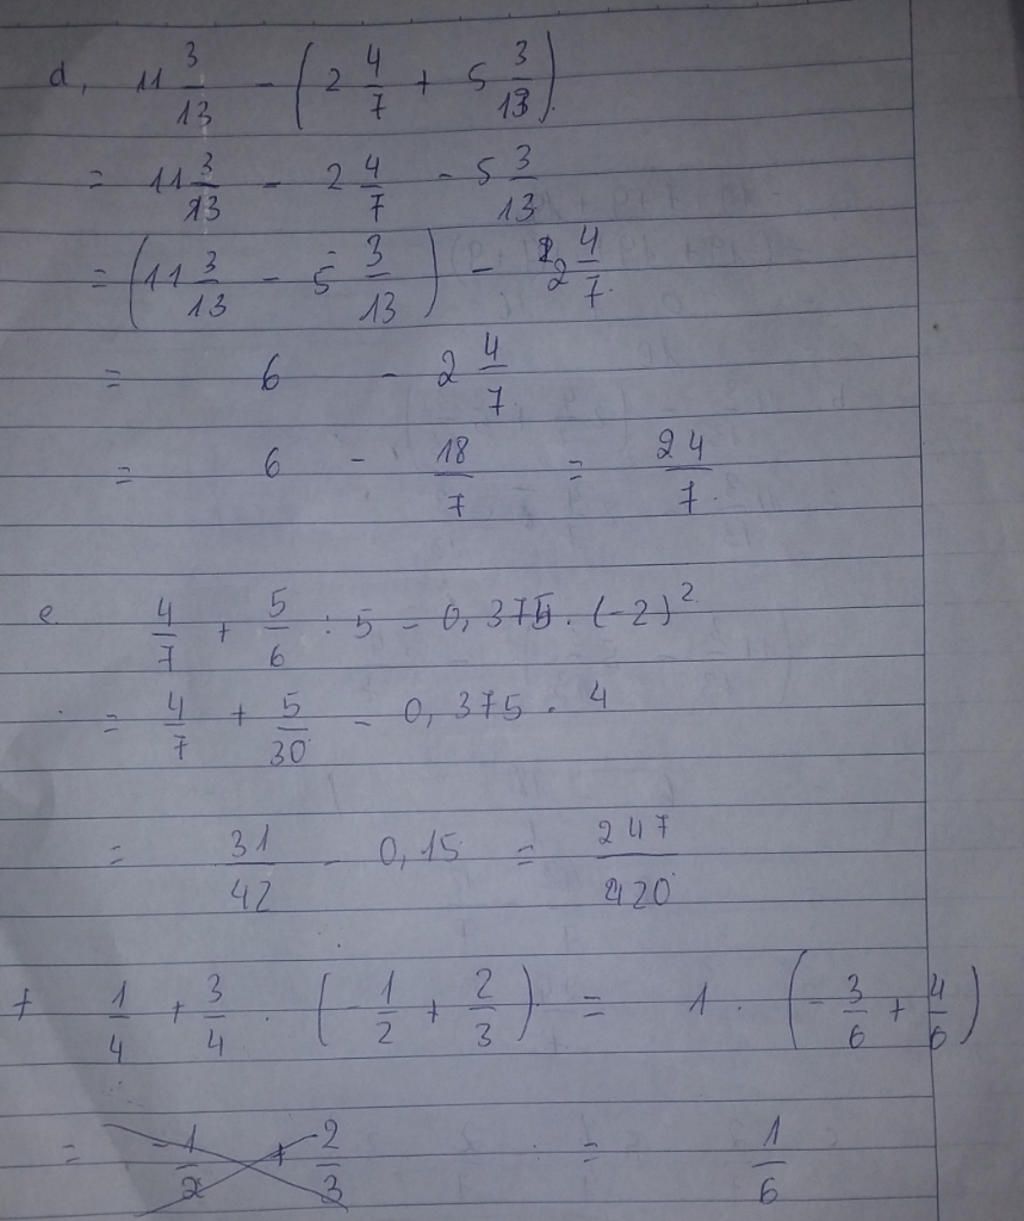 d, 11 3/13 - (2 4/7 + 5 3/13)
= 11 3/13 - 2 4/7 - 5 3/13
= (11 3/13 - 5 3/13) - 2 4/7
= 6 - 2 4/7
= 6 - 18/7 = 24/7
e. 4/7 + 5/6 : 5 - 0,375 . (-2)²
= 4/7 + 5/30 - 0,375 . 4
= 31/42 - 0,15 = 247/420
f 1/4 + 3/4 . (-1/2 + 2/3) = 1 . (-3/6 + 4/6)
= -1/2 + 2/3 = 1/6